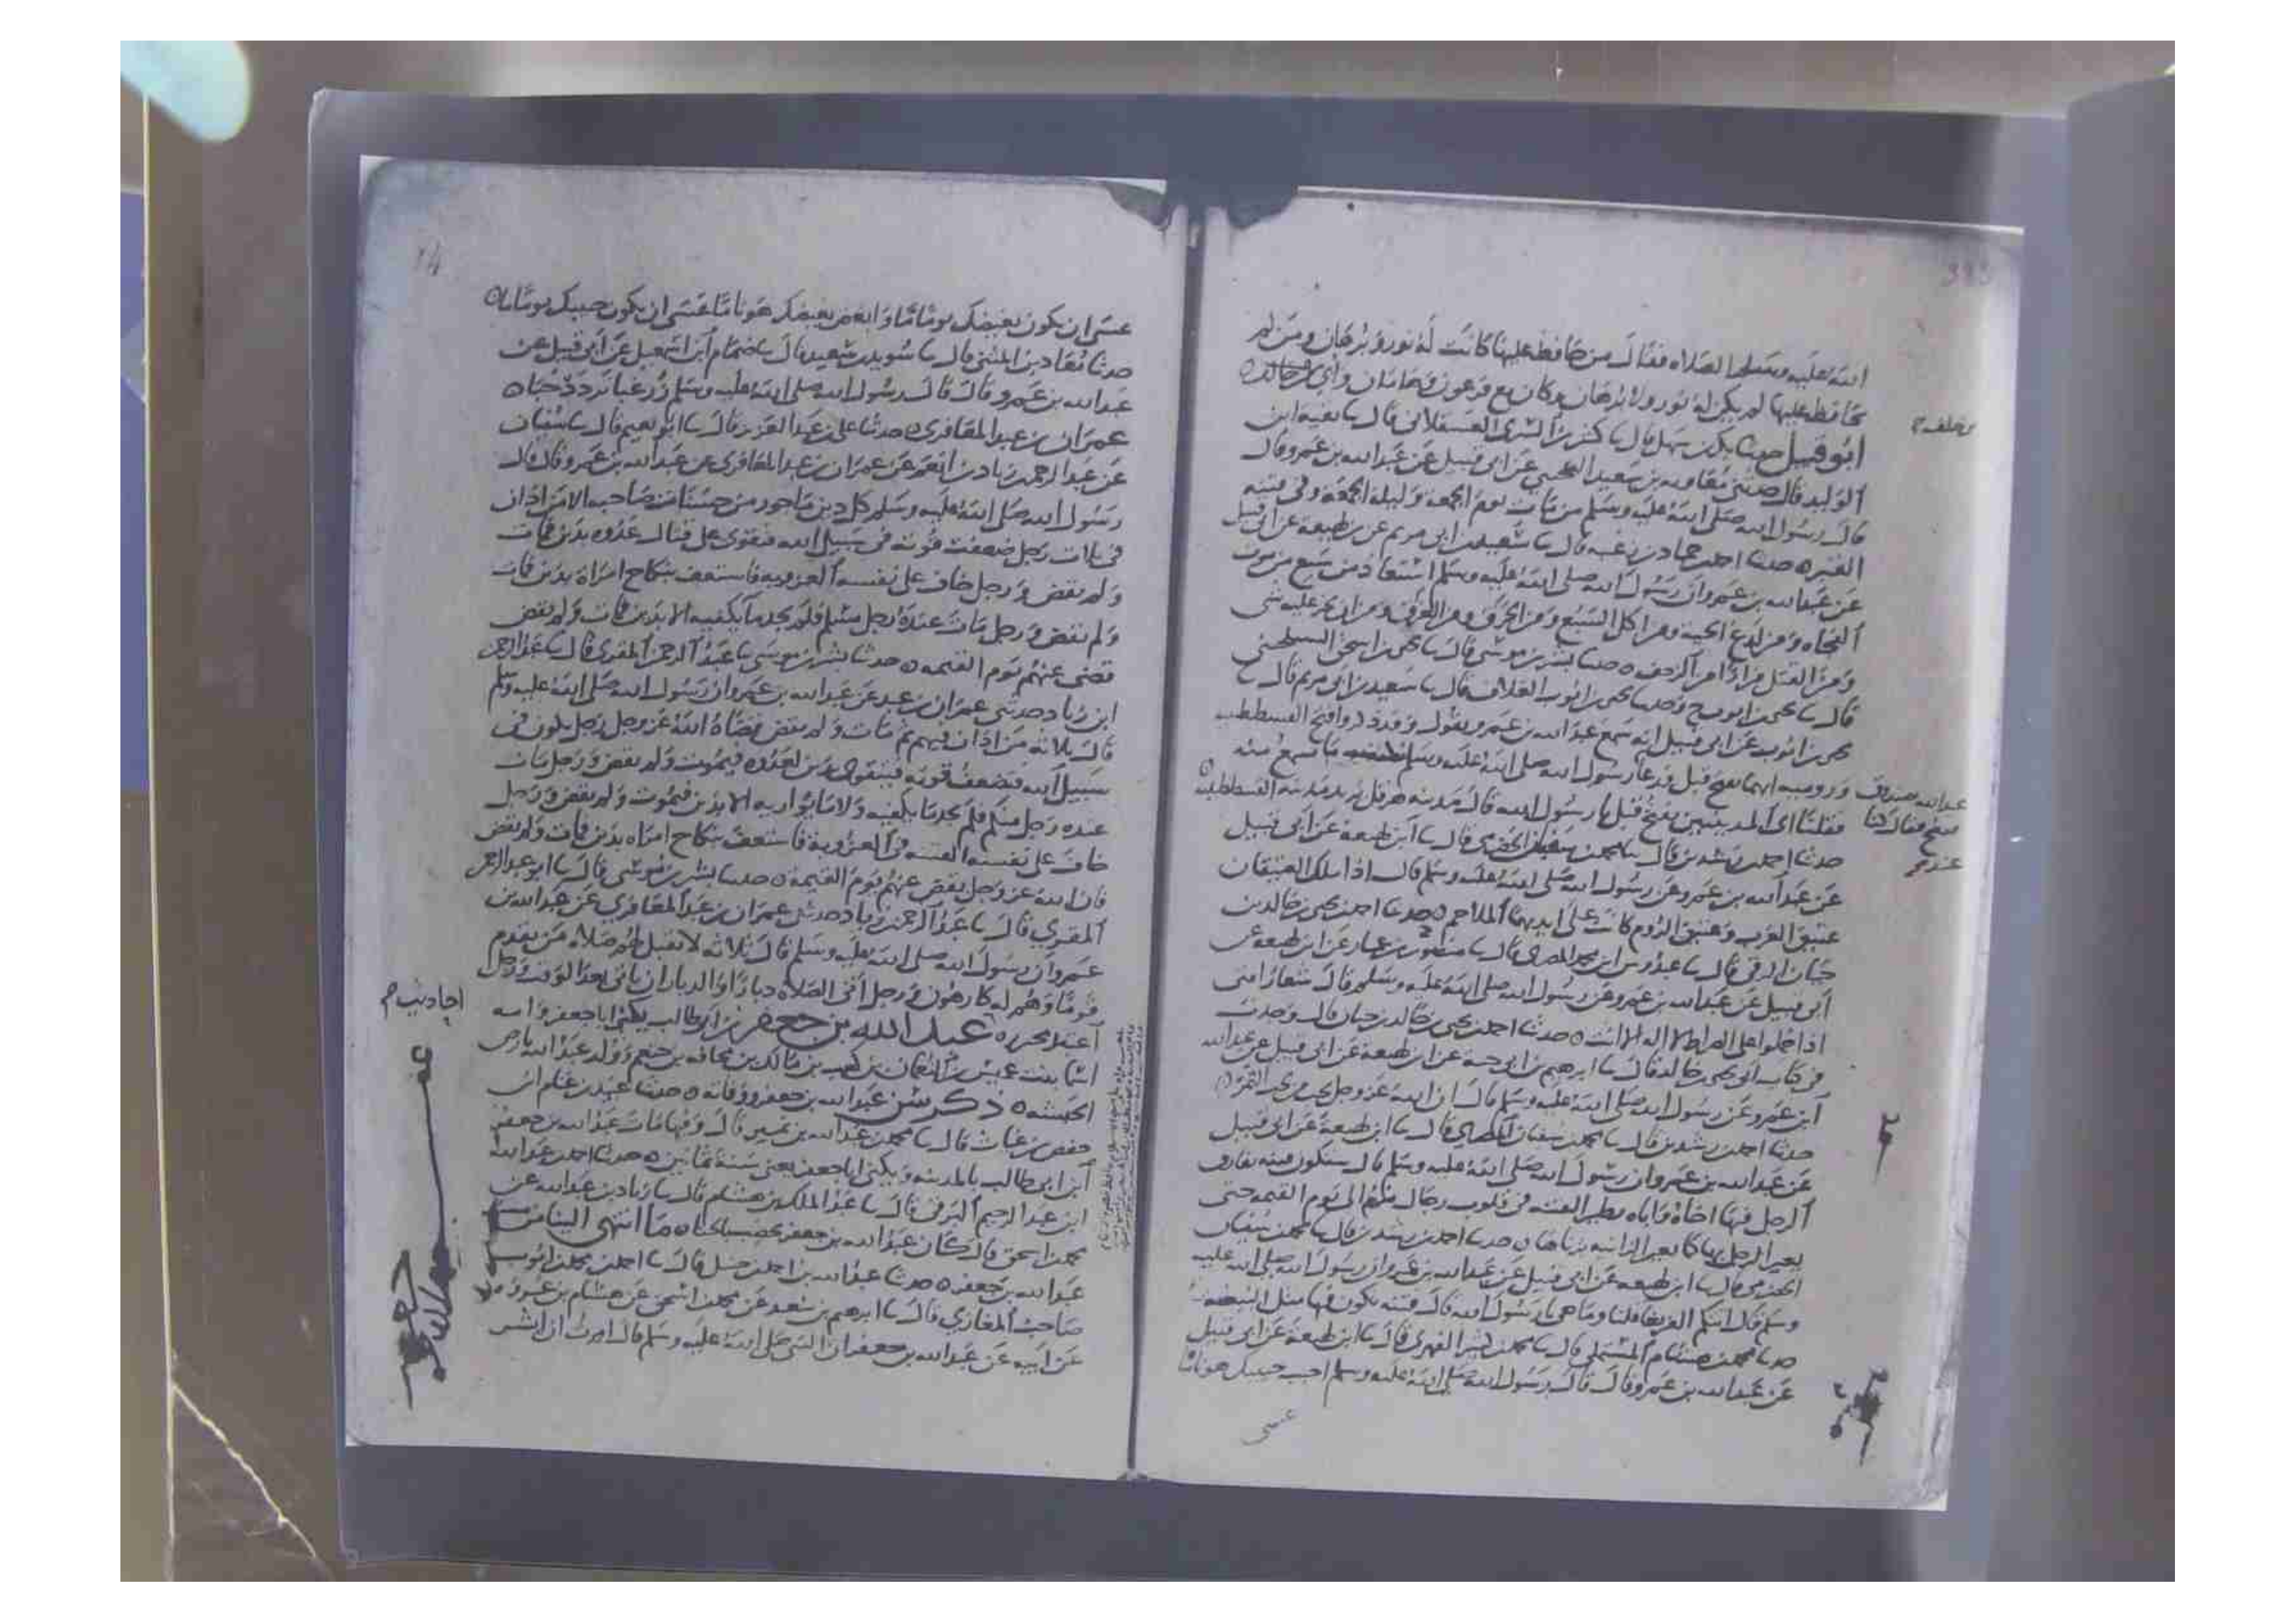 الله عليه وسلم الصلاه فقال من حافظ عليها كانت له نور وبرهان ومن لم
يحافظ عليها لم يكن له نور ولا برهان وكان مع فرعون وهامان وأبي بن خالد
ابو قبيل حدثنا بكر بن سهل قال نا بن السري العسقلاني قال نا بقية ابن
الوليد قال حدثني معاويه بن سعيد التجيبي عن ابي قبيل عن عبد الله بن عمرو قال
قال رسول الله صلى الله عليه وسلم من مات يوم الجمعه وليلة الجمعة وقي فتنه
القبر حدثنا احمد بن حماد بن زغبه قال نا سعيد بن ابي مريم عن بن لهيعة عن ابي قبيل
عن عبد الله بن عمرو ان رسول الله صلى الله عليه وسلم استعاذ من سبع من موت
الفجاه ومن لدغ الحية ومن اكل السبع ومن الحرق ومن الغرق ومن ان يخر عليه شي
ومن القتل فرارا من الزحف حدثنا بشر بن موسى قال نا يحيى بن اسحق السيلحيني
قال نا يحيى بن ايوب ح وحدثنا يحيى بن ايوب العلاف قال نا سعيد بن ابي مريم قال نا
يحيى بن ايوب عن ابي قبيل انه سمع عبد الله بن عمرو يقول وفتح القسطنطينيه
ورومية ايهما يفتح قبل فدعا
فقلنا اي المدينتين يفتح قبل يا رسول الله قال مدينه هرقل يريد مدينه القسطنطينيه
حدثنا احمد بن رشدين قال نا محمد بن سفيان الحضرمي قال نا ابن لهيعة عن ابي قبيل
عن عبد الله بن عمرو عن رسول الله صلى الله عليه وسلم قال اذا ملك العتيقان
عتيق العرب وعتيق الروم كانت على ايديهما الملاحم حدثنا احمد بن يحيى بن خالد بن
حيان الرقي قال نا عبدوس ابن محمد المصري قال نا منصور بن عمار عن ابن لهيعة عن
ابي قبيل عن عبد الله بن عمرو عن رسول الله صلى الله عليه وسلم قال شعار امتي
اذا حملوا على الصراط لا اله الا انت حدثنا احمد بن يحيى بن خالد بن حيان قال وجدت
في كتاب ابي يحيى بن خالد قال نا ابرهيم بن ابي حية عن ابن لهيعة عن ابي قبيل عن عبد الله
ابن عمرو عن رسول الله صلى الله عليه وسلم قال ان الله عز وجل
حدثنا احمد بن رشدين قال نا محمد بن سفيان الحضرمي قال نا ابن لهيعة عن ابي قبيل
عن عبد الله بن عمرو ان رسول الله صلى الله عليه وسلم قال ستكون فتنه يفارق
الرجل فيها اخاه واباه يطير الفتنه في قلوب رجال منهم الى يوم القيمه حتى
يعير الرجل بها كما يعير الزانيه بزناها حدثنا احمد بن رشدين قال نا محمد بن سفيان
الحضرمي قال نا ابن لهيعه عن ابي قبيل عن عبد الله بن عمرو ان رسول الله صلى الله عليه
وسلم قال قلنا وما هي يا رسول الله قال فتنه يكون فيها مثل البيضه
حدثنا محمد بن هشام المستملي قال نا محمد بن كثير الفهري قال نا ابن لهيعة عن ابي قبيل
عن عبد الله بن عمرو قال قال رسول الله صلى الله عليه وسلم احبب حبيبك هونا ما
عسى
عسى ان يكون بغيضك يوما ما وابغض بغيضك هونا ما عسى ان يكون حبيبك يوما ما
حدثنا معاذ بن المثنى قال نا سويد بن سعيد قال نا ضمام ابن اسمعيل عن ابي قبيل عن
عبد الله بن عمرو قال قال رسول الله صلى الله عليه وسلم زر غبا تزدد حبا
عمران بن عبد المعافري حدثنا علي بن عبد العزيز قال نا ابو نعيم قال نا سفيان
عن عبد الرحمن بن زياد بن انعم عن عمران بن عبد المعافري عن عبد الله بن عمرو قال قال
رسول الله صلى الله عليه وسلم كل دين ماخوذ من حسنات صاحبه الا من ادان
في ثلاث رجل ضعفت قوته في سبيل الله فتقوى على قتال عدوه بدين فمات
ولم يقض ورجل خاف على نفسه العزوبه فاستعف بنكاح امراة بدين فمات
ولم يقض ورجل مات عنده رجل مسلم فلم يجد ما يكفيه الا بدين فمات ولم يقض
قضي عنهم يوم القيمه حدثنا بشر بن موسى نا عبد الرحمن المقري قال نا عبد الرحمن
ابن زياد حدثني عمران بن عبد عن عبد الله بن عمرو ان رسول الله صلى الله عليه وسلم
قال ثلاثه من ادان فيهم ثم مات ولم يقض قضاه الله عز وجل رجل يكون في
سبيل الله فتضعف قوته فيتقوى بدين لعدوه فيموت ولم يقض ورجل مات
عنده رجل مسلم فلم يجد ما يكفيه ولا ما يواريه الا بدين فيموت ولم يقض ورجل
خاف على نفسه الفتنه في العزوبة فاستعف بنكاح امراه بدين فمات ولم يقض
فان الله عز وجل يقضي عنهم يوم القيمه حدثنا بشر بن موسى قال نا ابو عبد الرحمن
المقري قال نا عبد الرحمن بن زياد حدثني عمران بن عبد المعافري عن عبد الله بن
عمرو ان رسول الله صلى الله عليه وسلم قال ثلاثه لا تقبل لهم صلاه من يقوم
قوما وهم له كارهون ورجل اتى الصلاه دبارا والدبار ان ياتي بعد الوقت ورجل
اعتبد محرره عبد الله بن جعفر بن ابي طالب يكنى ابا جعفر وامه
اسما بنت عميس بن النعمان بن كعب بن مالك بن قحافه بن خثعم وولد عبد الله بارض
الحبشه ذكر سن عبد الله بن جعفر ووفاته حدثنا عبيد بن غنام ابن
حفص بن غياث قال نا محمد بن عبد الله بن نمير قال وفيها مات عبد الله بن جعفر
ابن ابي طالب بالمدينه ويكنى ابا جعفر يعني سنة ثمانين حدثنا احمد بن عبد الله
ابن عبد الرحيم البرقي قال نا عبد الملك بن هشام قال نا زياد بن عبد الله عن
محمد بن اسحق قال كان عبد الله بن جعفر يخضب بالحنا ما انتهى الينا من
عبد الله بن جعفر حدثنا عبد الله بن احمد بن حنبل قال نا احمد بن محمد بن ايوب
صاحب المغازي قال نا ابرهيم بن سعد عن محمد بن اسحق عن هشام بن عروه
عن ابيه عن عبد الله بن جعفر ان النبي صلى الله عليه وسلم قال امرت ان ابشر